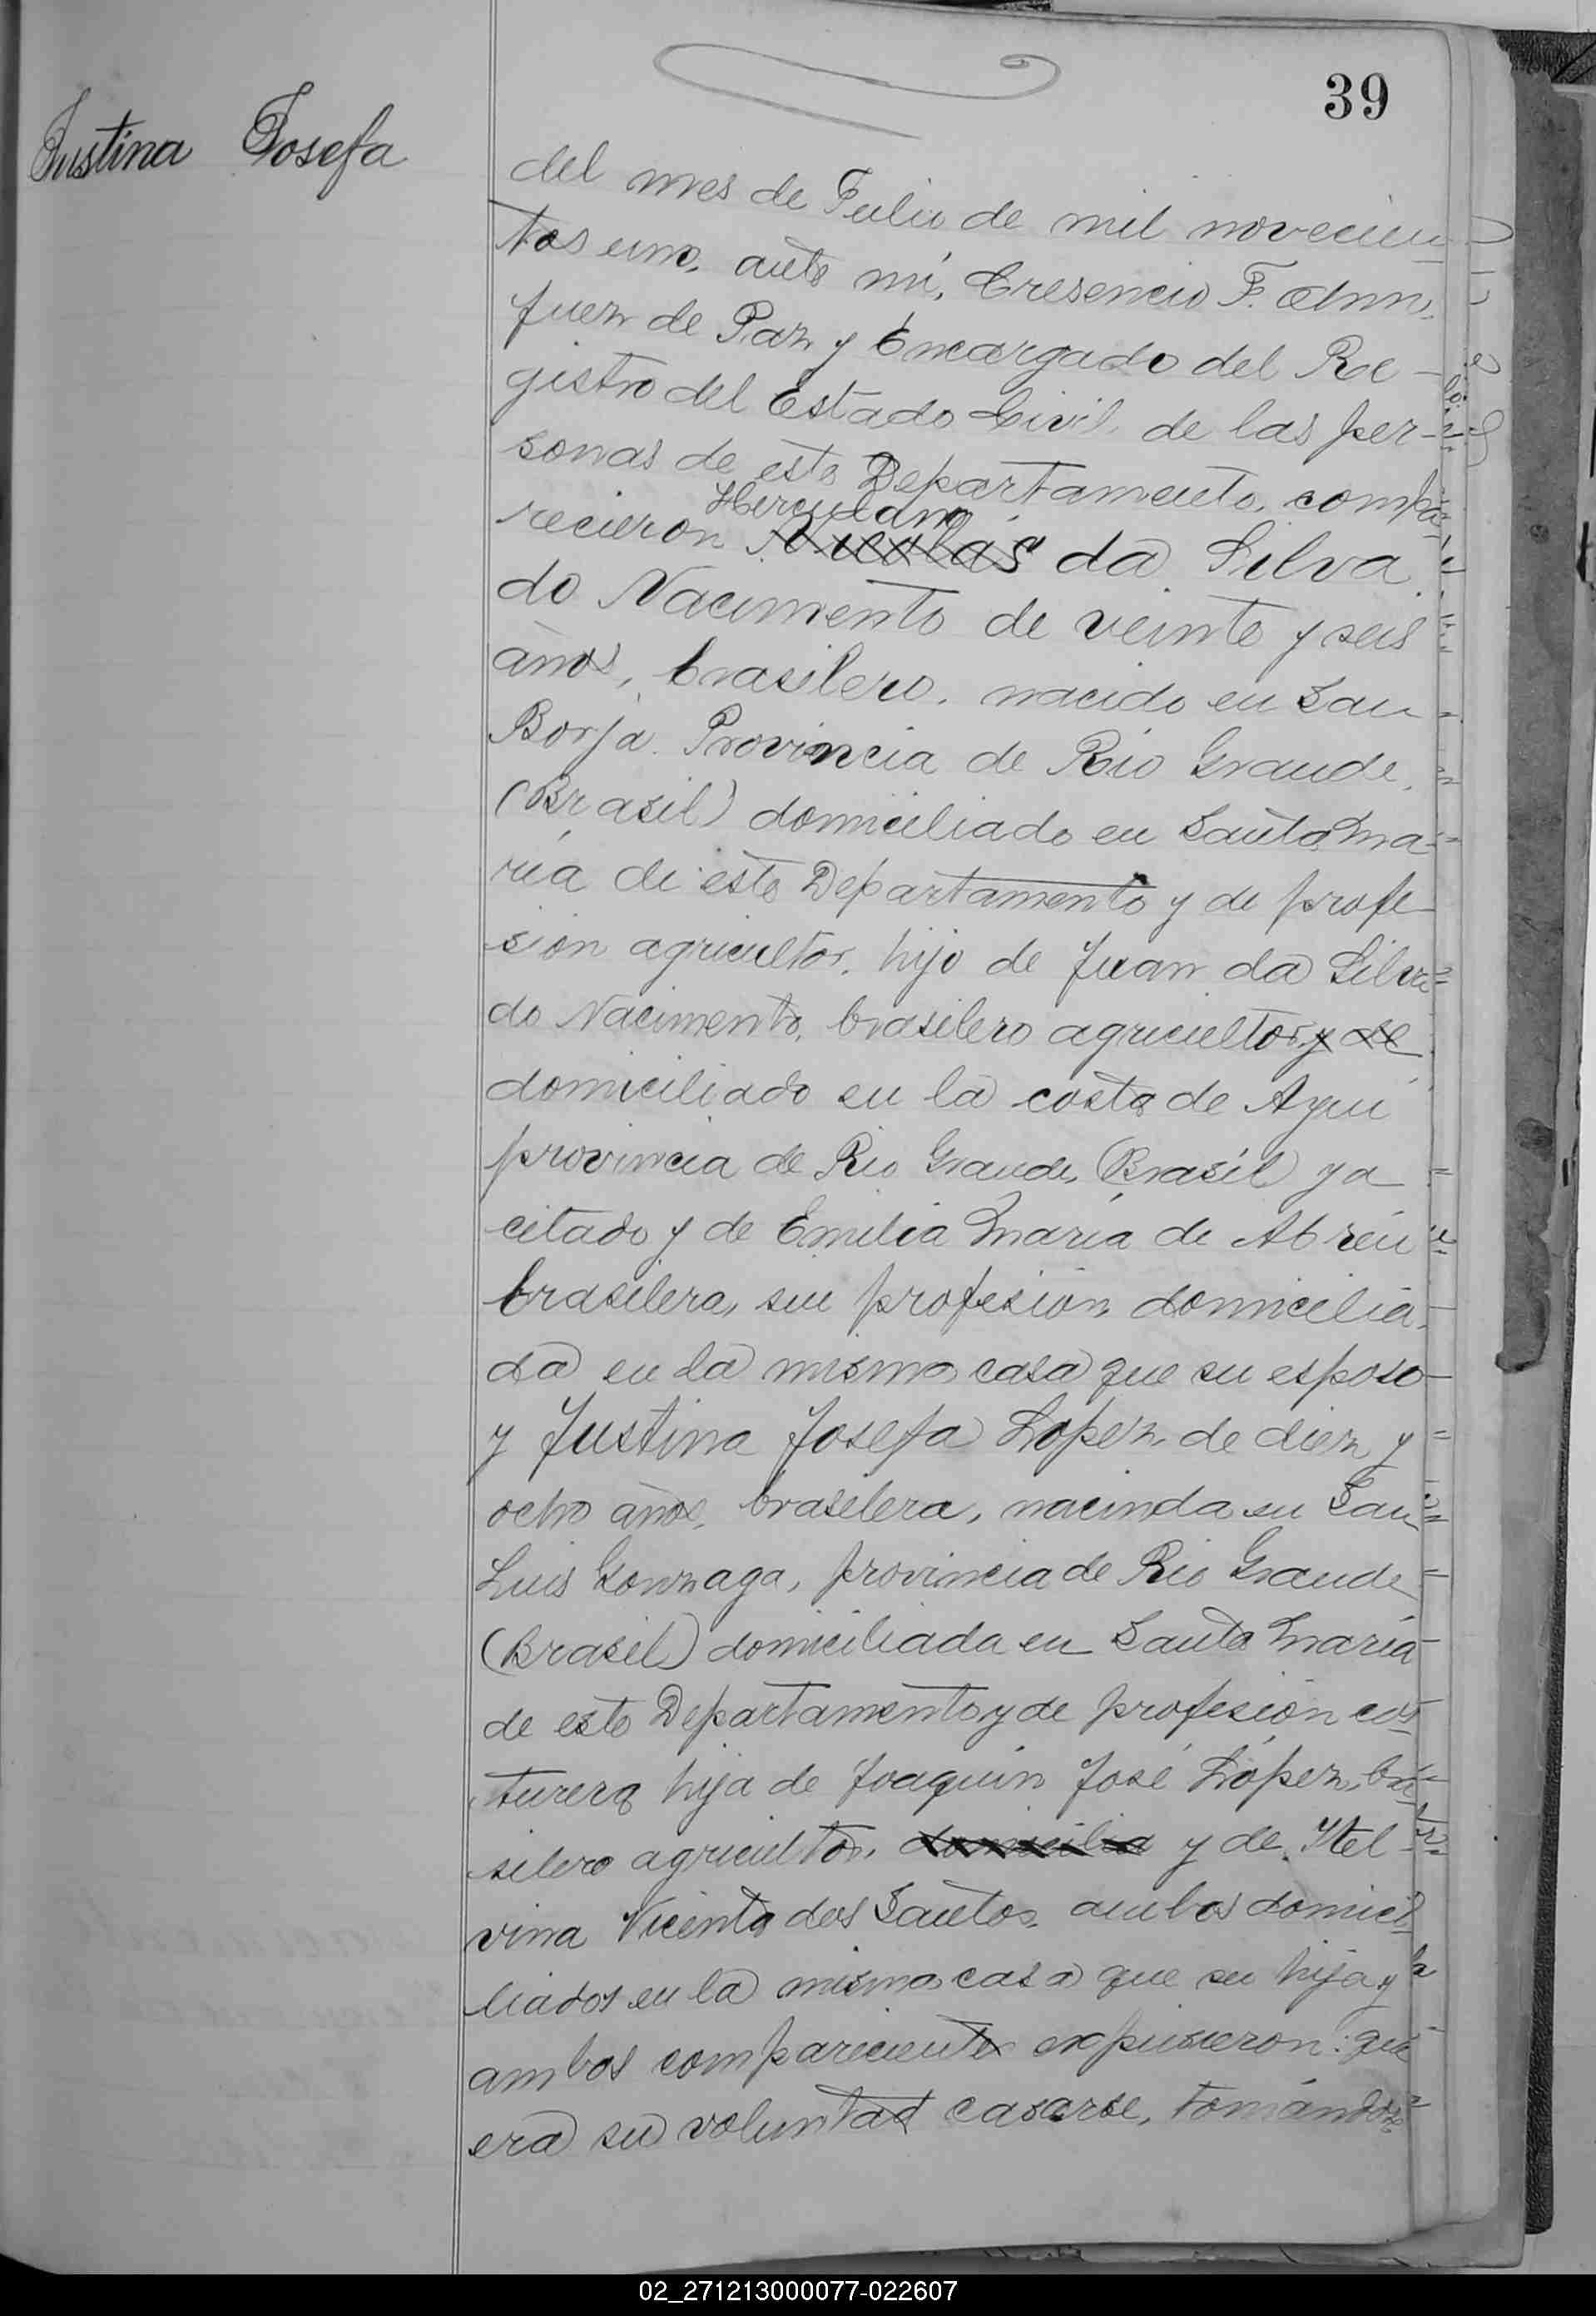 39
Justina Josefa
del mes de Julio de mil novecien
tos uno, ante mi, Cresencio F.
Juez de Paz y Encargado del Re-
gistro del Estado Civil, de las per-
sonas de este Departamento, compa-
Herculano
recieron Nicolás da Silva
do Nacimento de veinte y seis
años, brasilero, nacido en San
Borja Provincia de Rio Grande,
(Brasil) domiciliado en Santa Ma-
ria de este Departamento y de profe-
sion agricultor, hijo de Juan da Silva
do Nacimento, brasilero agricultor y de
domiciliado en la costa de
provincia de Rio Grande, (Brasil) ya
citado y de Emilia Maria de Abreu
brasilera, sin profesion, domicilia-
da en la misma casa que su esposo
y Justina Josefa Lopez, de diez y
ocho años, brasilera, nacinda en San
Luis Gonzaga, provincia de Rio Grande
(Brasil) domiciliada en Santa Maria
de este Departamento y de profesion cos-
turera hija de Joaquin José López, bra-
silero agricultor, domicilia y de Itel-
vina Vicenta dos Santos, ambos domici-
liados en la misma casa que su hija y
ambos compareciente expusieron: que
era su voluntad casarse, tomándose
02_271213000077-022607